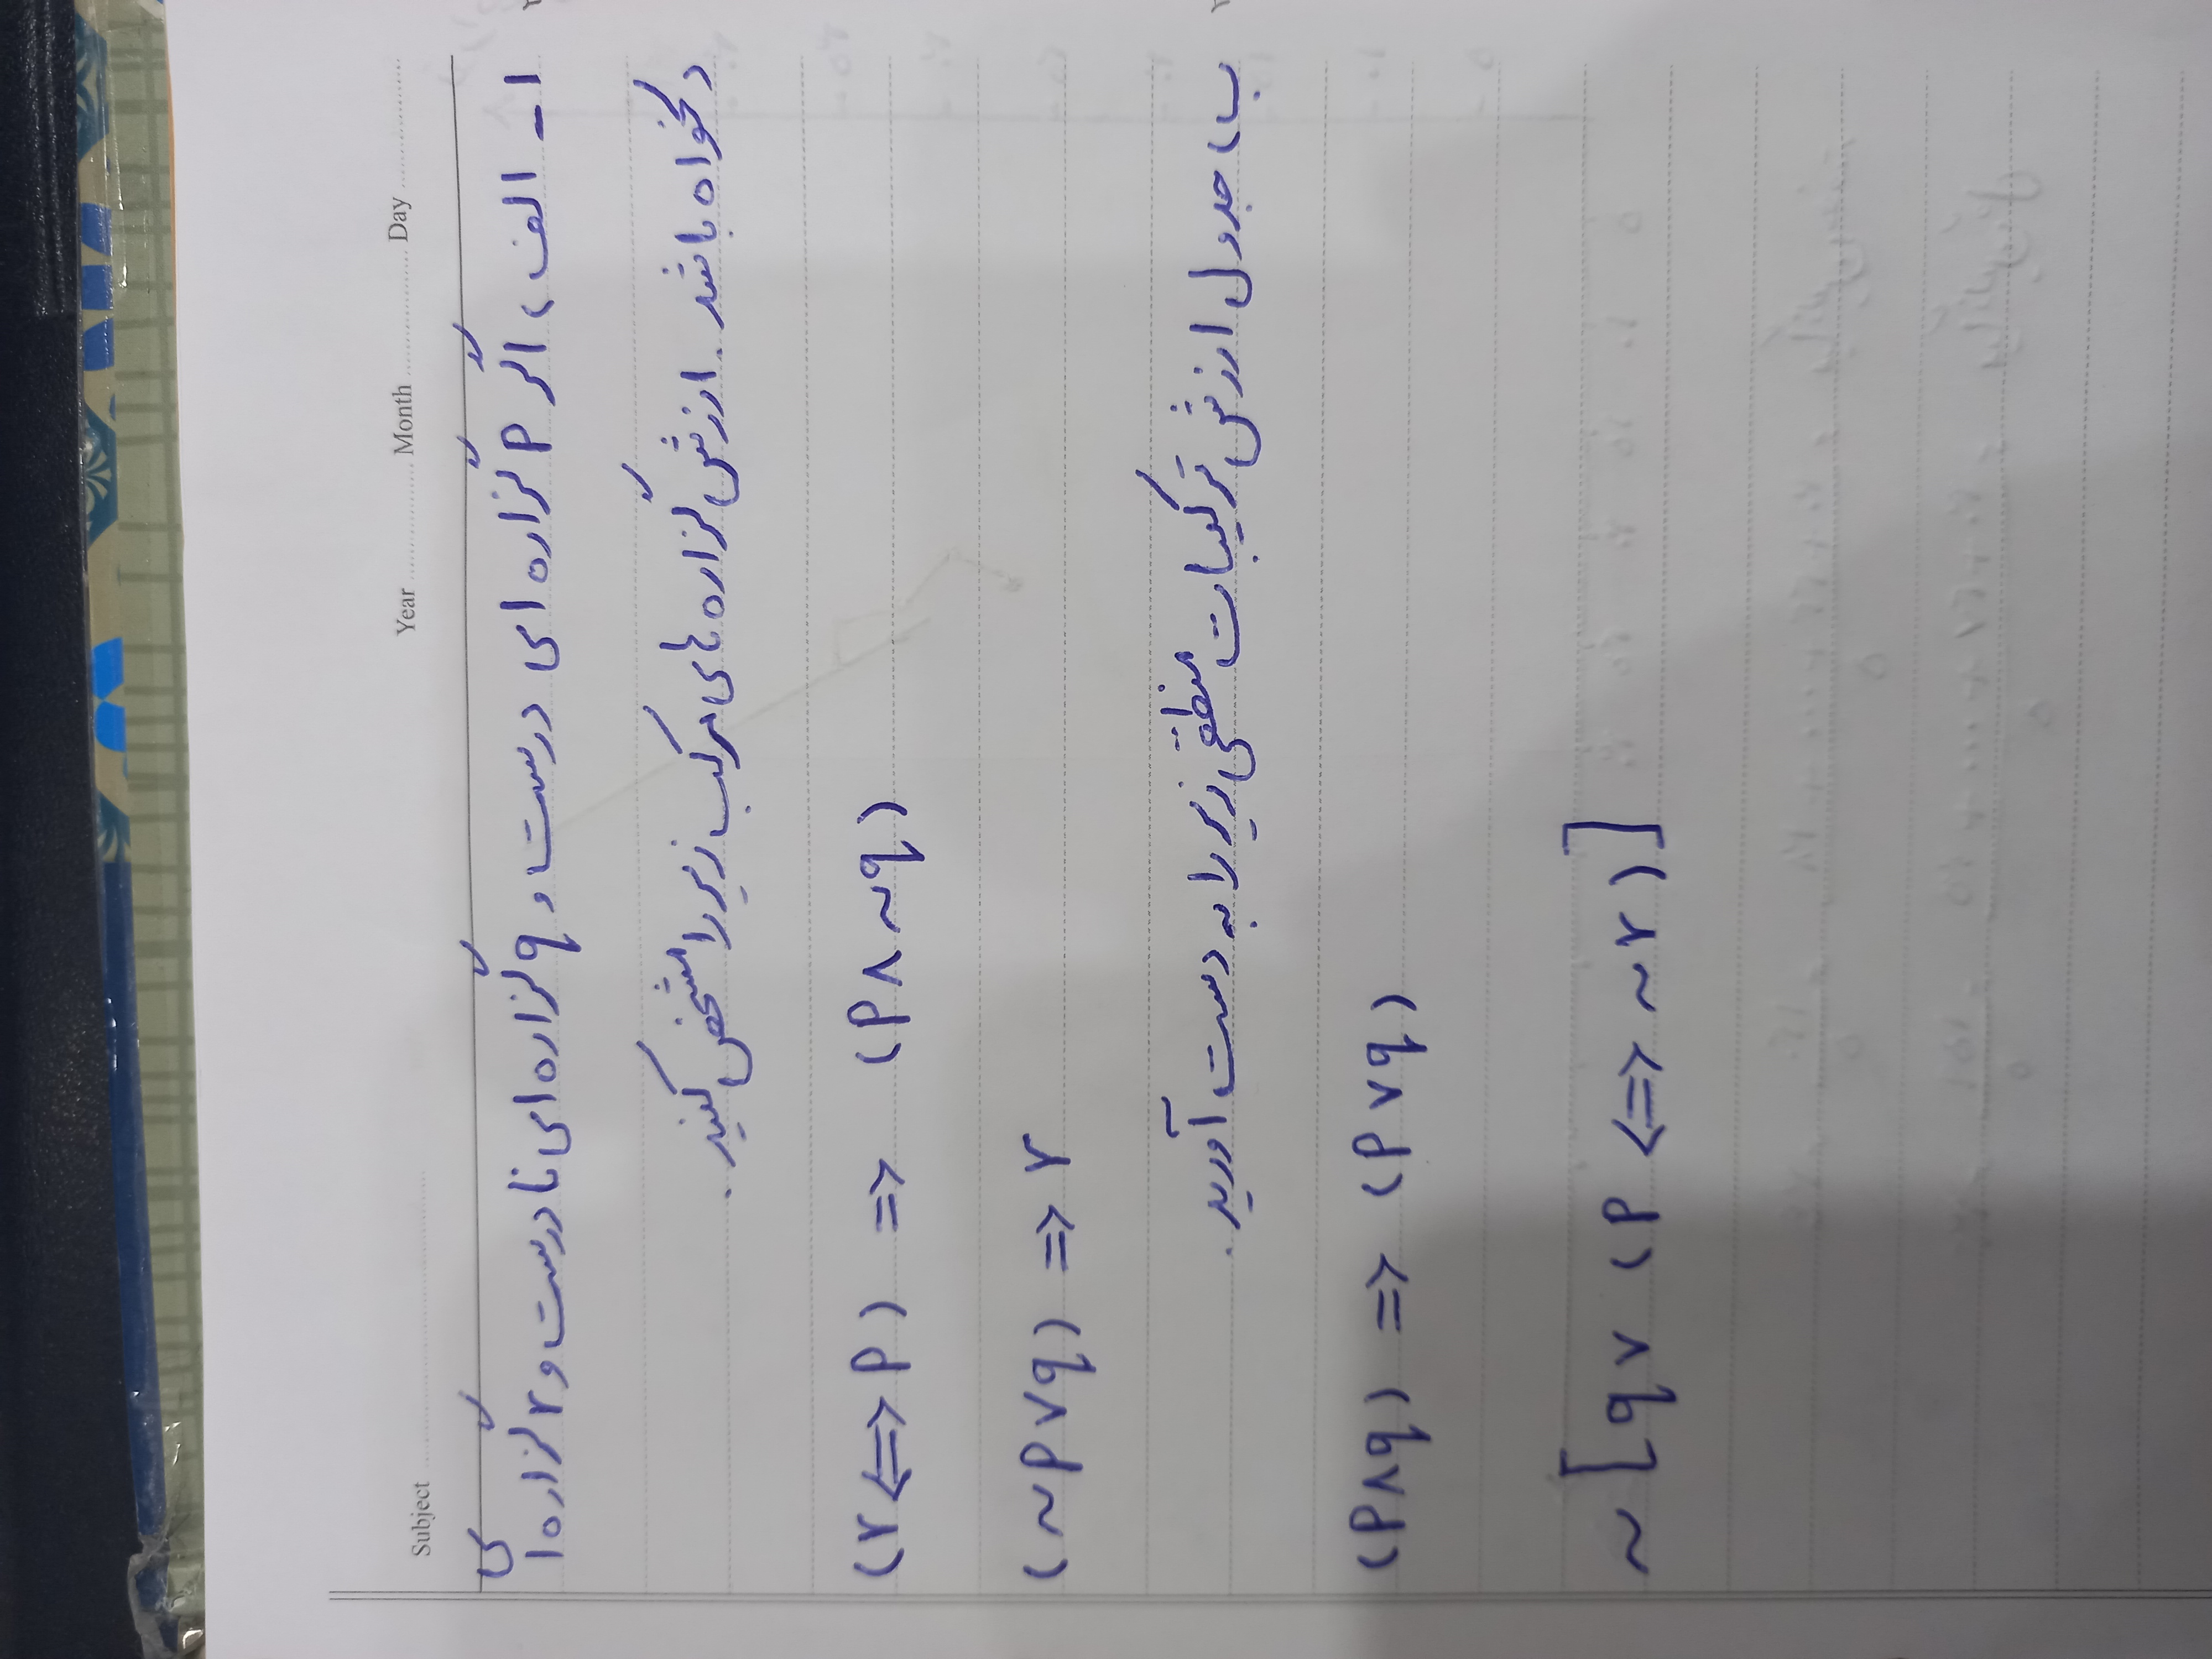 Subject Year Month Day
۱- الف، اگر p گزاره ای درست و q گزاره ای نا درست و r گزاره ای
دلخواه باشد. ارزش گزاره های مرکب زیر را مشخص کنید.
(r <=> p) => (p ∧ ~q)
(~p ∨ q) => r
ب، جدول ارزش ترکیبات منطقی زیر را به دست آورید.
(p ∧ q) => (p ∨ q)
~[q ∨ (p <=> ~r)]